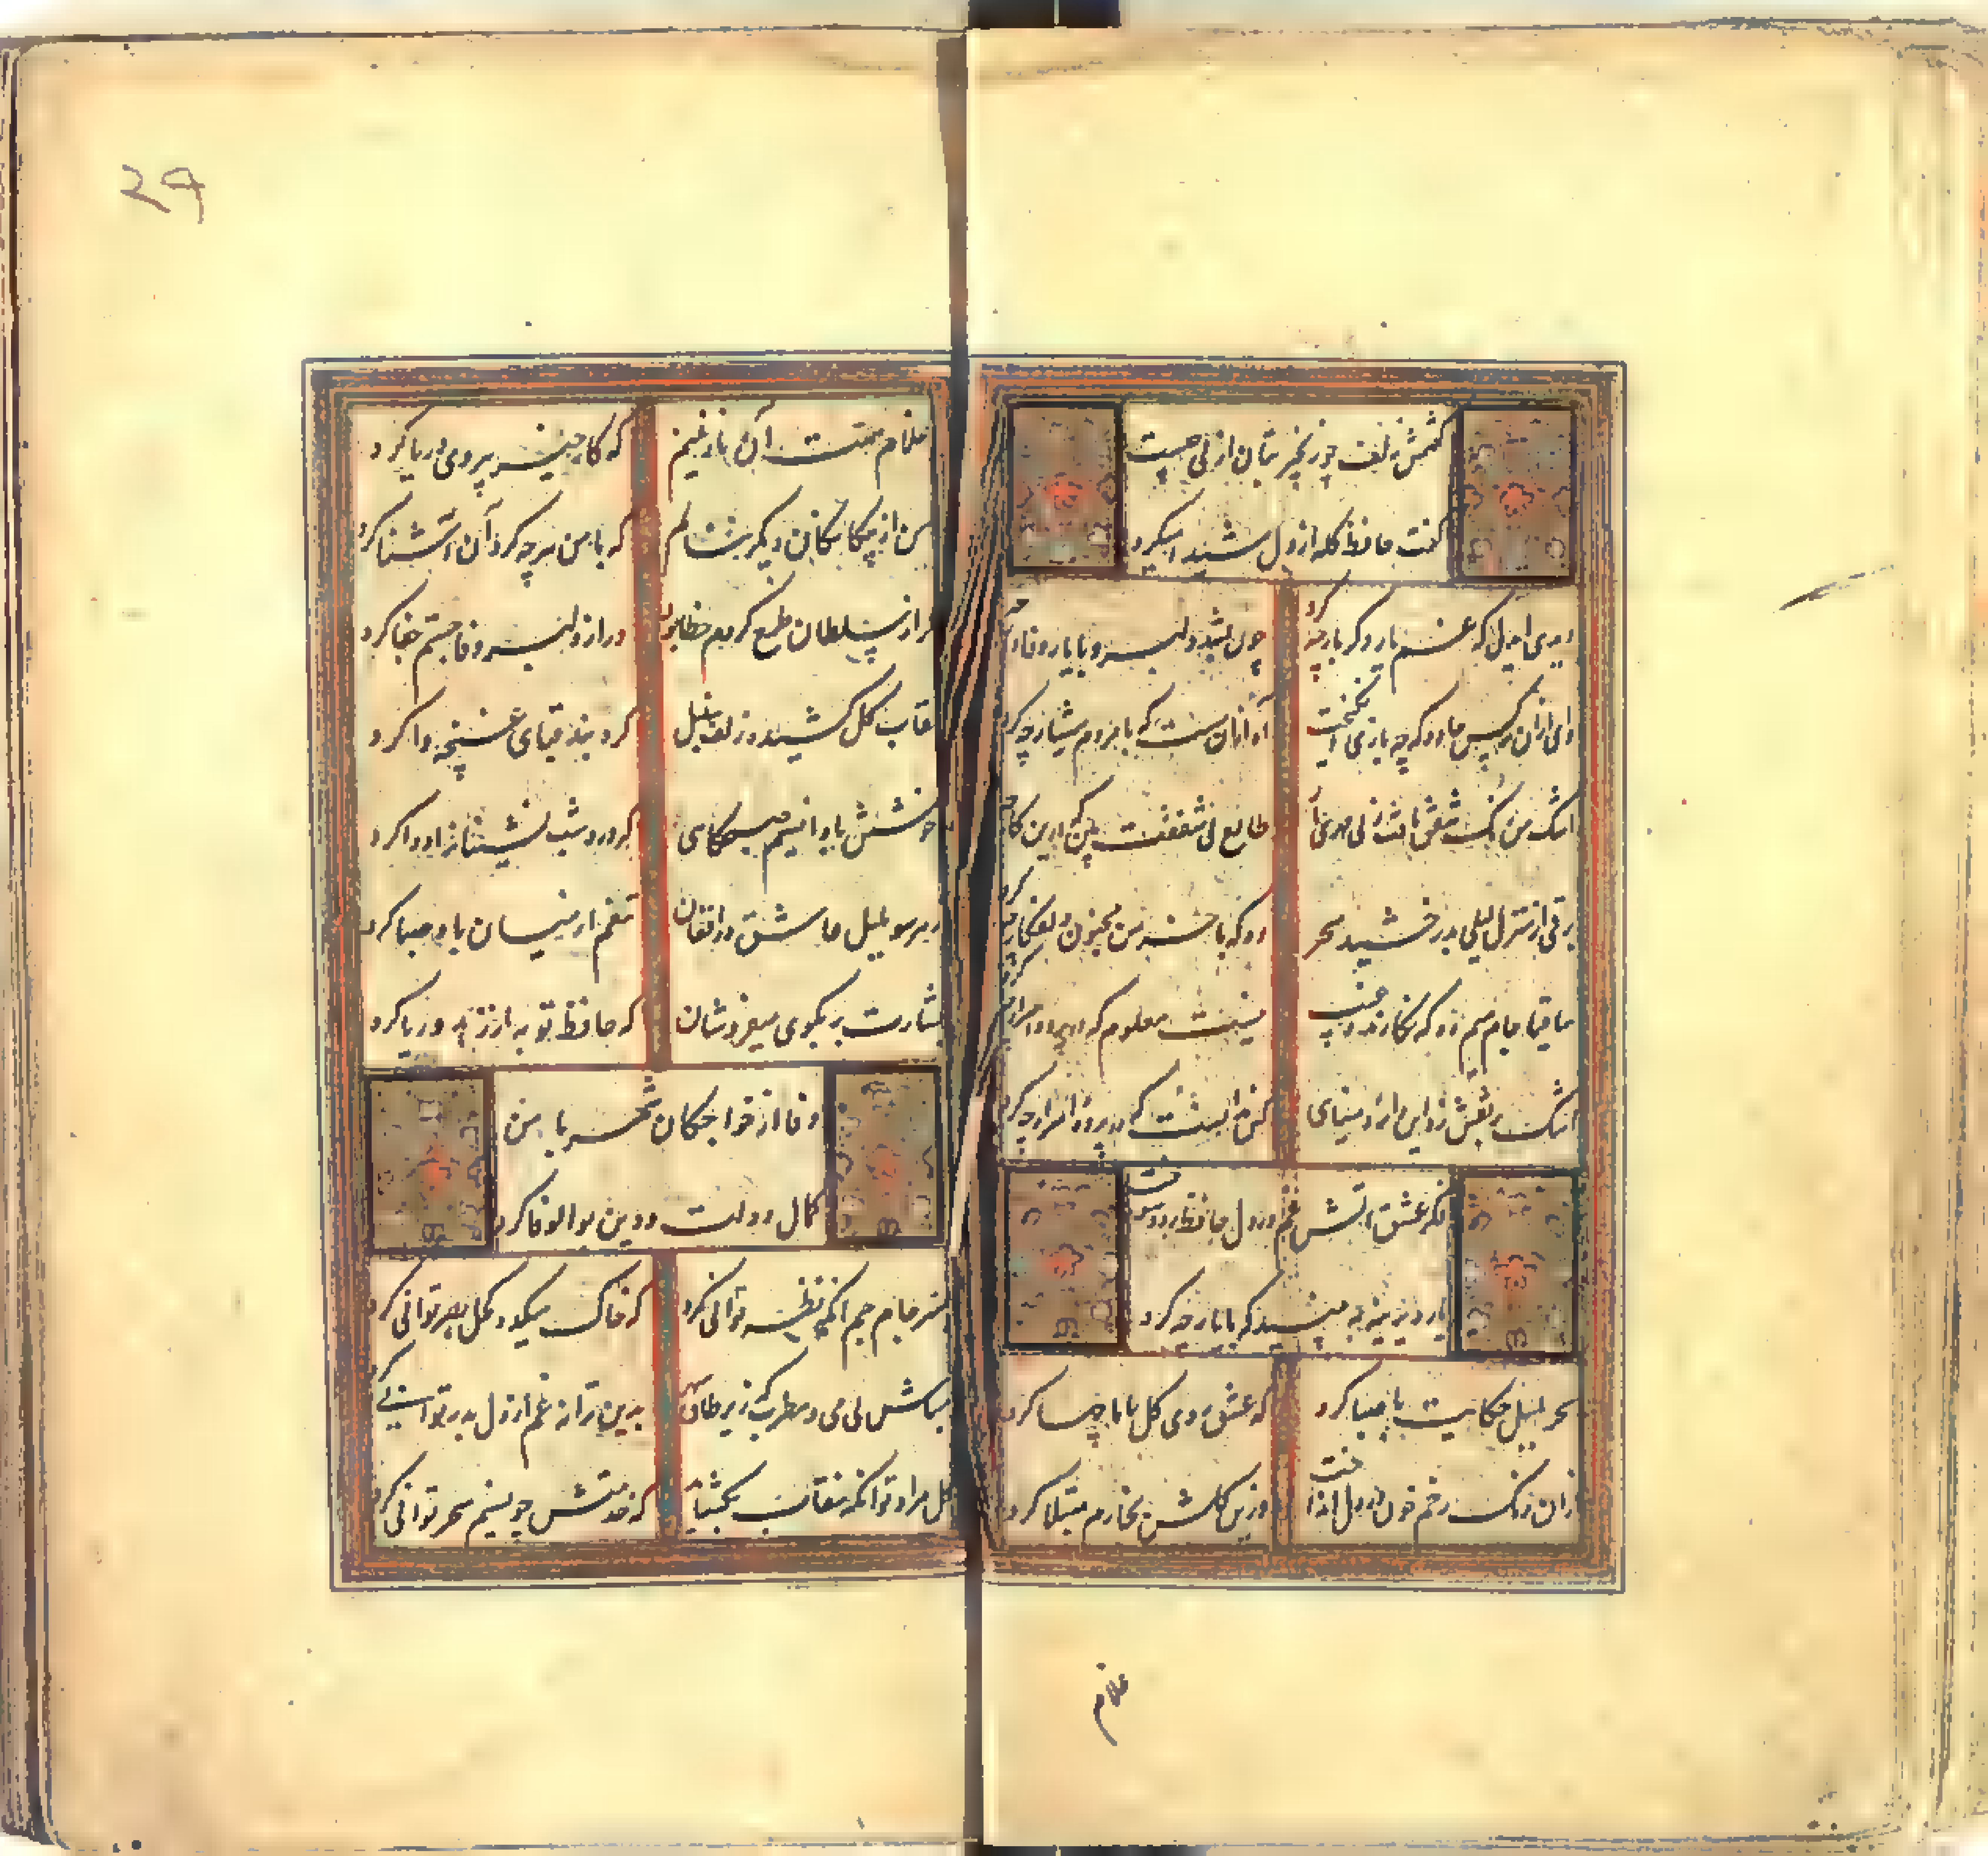 گفتمش زلف چو زنجیر بتان از پی چیست
گفت حافظ گله از دل شیدا میکرد
دیدی ایدل که غم یار دگر بار چه کرد
چون بشد دلبر و با یار وفادار چه
وای ازان نرکس جادو که چه بازی انکیخت
آه ازان مست که با مردم هشیار چه کرد
اشک من رنک شفق یافت ز بی مهری
طالع بی شفقت بین که درین کار
برقی از منزل لیلی بدرخشید سحر
وه که با خرمن مجنون دل افکار چه کرد
ساقیا جام میم ده که نکارنده غیب
نیست معلوم که در
کرد
فکر عشق آتش غم در دل حافظ زد و سوخت
یار دیرینه به بینید که با یار چه کرد
سحر بلبل حکایت با صبا کرد
که عشق روی کل با ما چها کرد
ازان رنک رخم خون در دل انداخت
وزین کلشن بخارم مبتلا کرد
غلام
۲۹
غلام همت آن نازنینم
که کار خیر بی روی و ریا کرد
من از بیکانکان دیکر ننالم
که با من هرچه کرد آن آشنا کرد
کر از سلطان طمع کردم خطا بود
ور از دلبر وفا جستم جفا کرد
نقاب کل کشید و زلف سنبل
کره بند قبای غنچه وا کرد
خوشش باد آن نسیم صبحکاهی
که درد شب نشینانرا دوا کرد
بهر سو بلبل عاشق در افغان
تنعم از میان باد صبا کرد
بشارت بر بکوی میفروشان
که حافظ توبه از زهد و ریا کرد
وفا از خواجکان شهر با من
کمال دولت و دین بوالوفا کرد
بسر جام جم آنکه نظر توانی کرد
که خاک میکده کحل بصر توانی کرد
مباش بی می و مطرب که زیر طاق
بدین ترانه غم از دل بدر توانی
کل مراد تو آنکه نقاب بکشاید
که خدمتش چو نسیم سحر توانی کرد